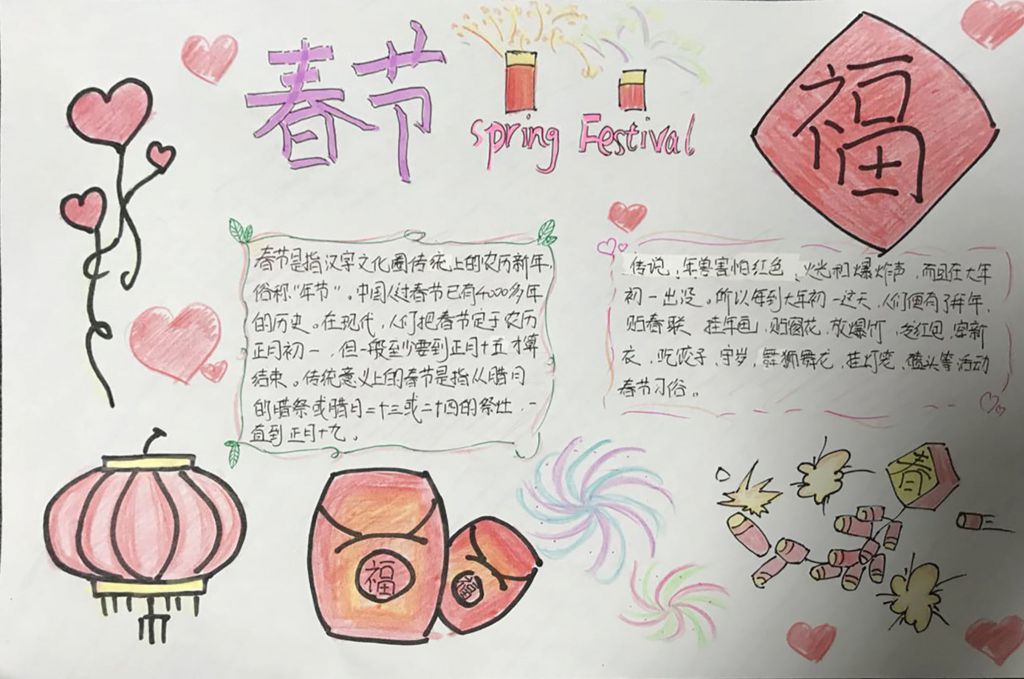 春节
Spring Festival
福
春节是指汉字文化圈传统上的农历新年,
俗称"年节"。中国人过春节已有4000多年
的历史。在现代,人们把春节定于农历
正月初一,但一般至少要到正月十五才算
结束。传统意义上的春节是指从腊月
的腊祭或腊月二十三或二十四的祭灶,一
直到正月十九。
传说,年兽害怕红色、火光和爆炸声,而且在大年
初一出没。所以每到大年初一这天,人们便有了拜年、
贴春联、挂年画、贴窗花、放爆竹、发红包、穿新
衣、吃饺子、守岁、舞狮舞龙、挂灯笼、磕头等活动
春节习俗。
福
福
春